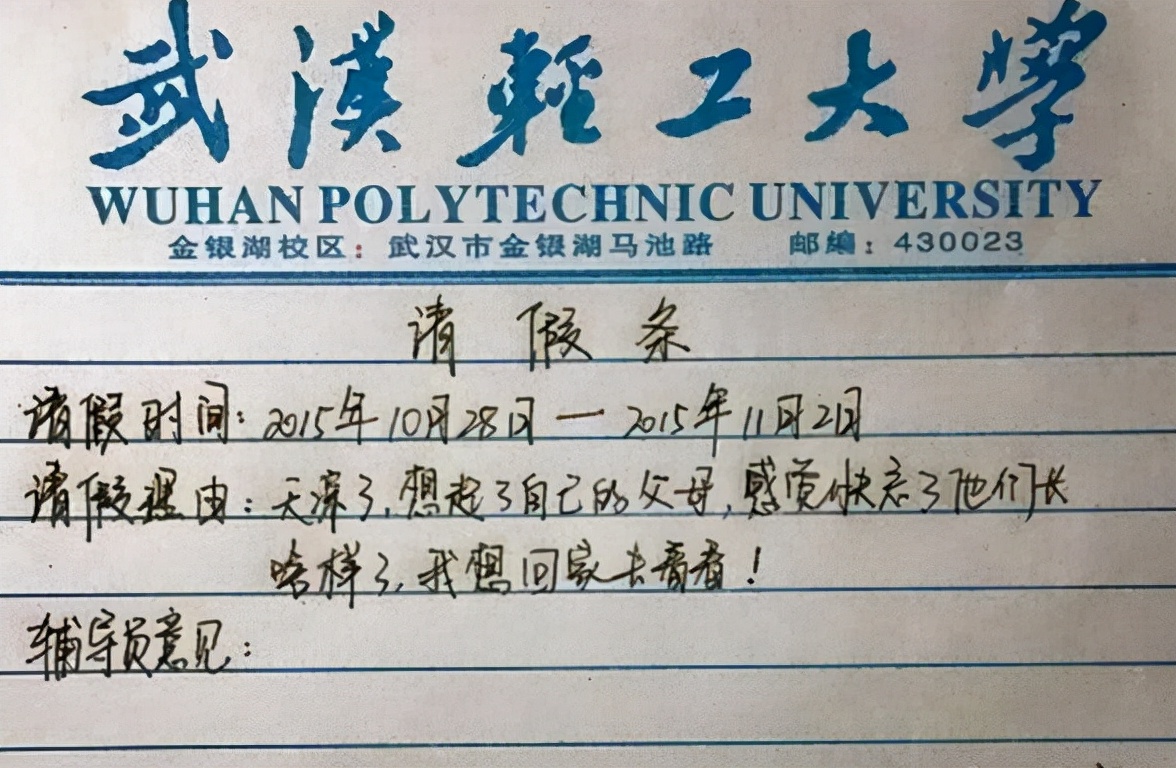 武漢輕工大學
WUHAN POLYTECHNIC UNIVERSITY
金银湖校区：武汉市金银湖马池路 邮编：430023
请假条
请假时间：2015年10月28日—2015年11月2日
请假理由：天凉了，想起了自己的父母，感觉快忘了他们长
啥样了，我想回家去看看！
辅导员意见：